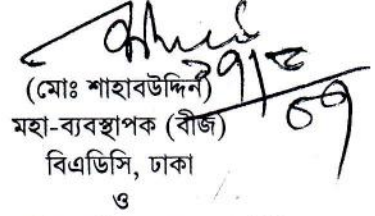 (মোঃ শাহাবউদ্দিন)
মহা-ব্যবস্থাপক (বীজ)
বিএডিসি, ঢাকা
ও